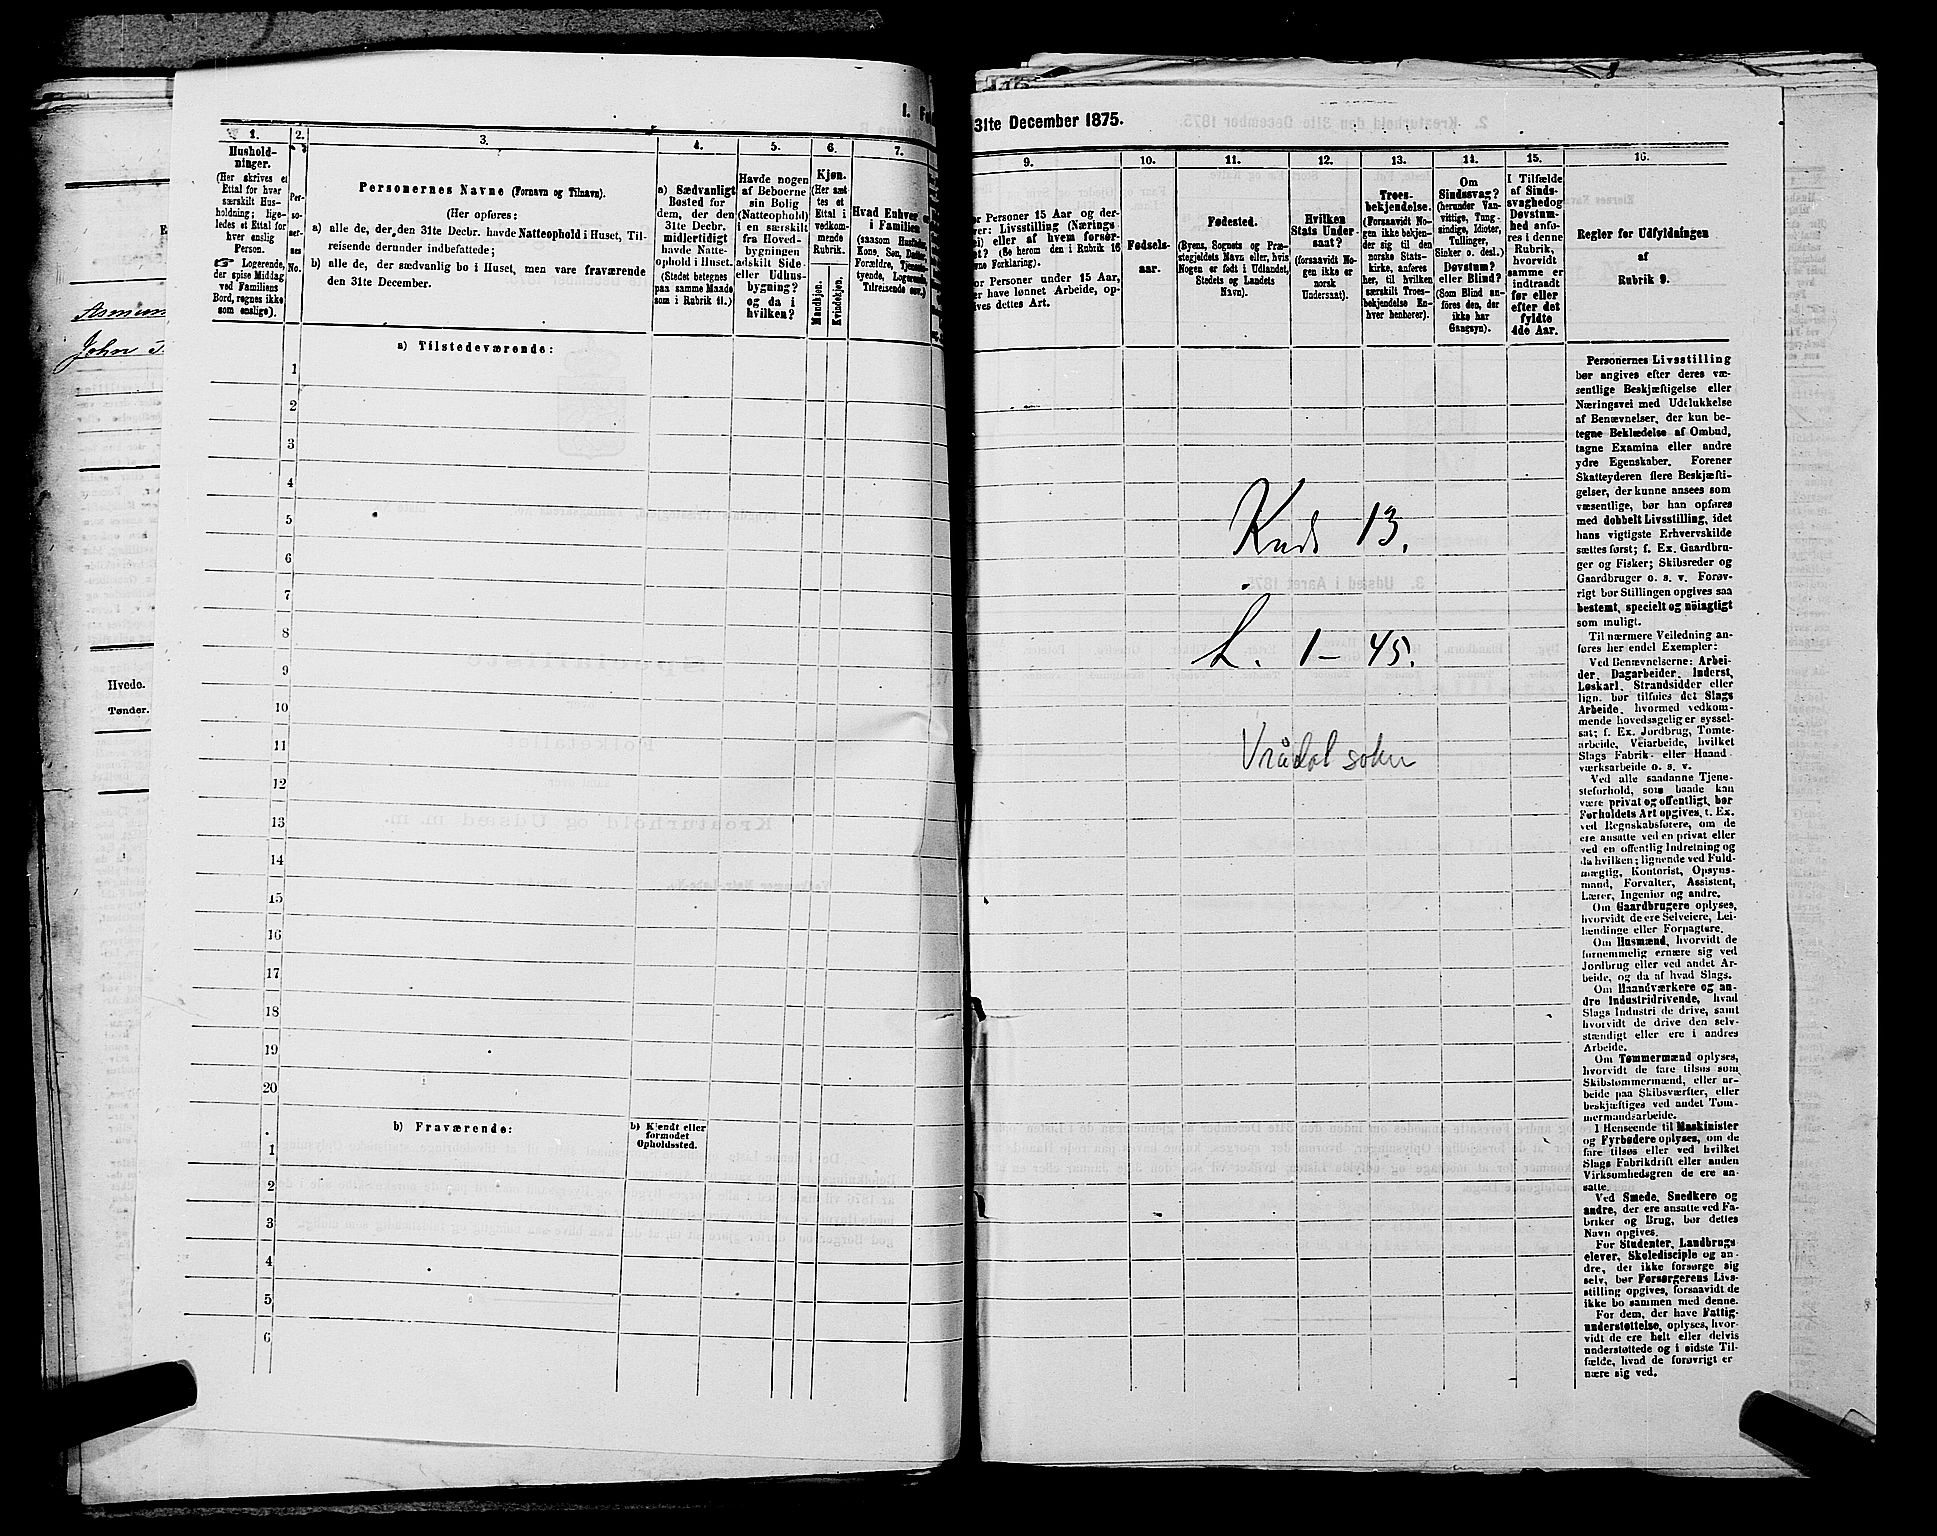 1. Fo
31te December 1875.
1.
2.
3.
4.
5.
6.
7.
9.
10.
11.
12.
13.
14.
15.
16.
Hushold-
ninger.
(Her skrives et
Ettal for hver
særskilt Hus-
holdning; lige-
ledes et Ettal for
hver enslig
Person.
☞ Logerende,
der spise Middag
ved Familiens
Bord, regnes ikke
som enslige).
Per-
so-
ner-
nes
No.
Personernes Navne (Fornavn og Tilnavn).
(Her opføres:
a) alle de, der den 31te Decbr. havde Natteophold i Huset, Til-
reisende derunder indbefattede;
b) alle de, der sædvanlig bo i Huset, men vare fraværende
den 31te December.
a) Sædvanligt
Bosted for
dem, der den
31te Decbr.
midlertidigt
havde Natte-
ophold i Huset.
(Stedet betegnes
paa samme Maade
som i Rubrik 11.)
Havde nogen
af Beboerne
sin Bolig
(Natteophold)
i en særskilt
fra Hoved-
bygningen
adskilt Side-
eller Udhus-
bygning?
og da i
hvilken?
Kjøn.
(Her sæt
tes et
Ettal i
vedkom-
mende
Rubrik.
Mandkjøn.
Kvindekjøn.
Hvad Enhver er
i Familien
(saasom Husfader,
Kone, Søn, Datter,
Forældre, Tjeneste-
tyende, Logerende,
Tilreisende osv.)
or Personer 15 Aar og der-
ver: Livsstilling (Nærings-
ei) eller af hvem forsør-
et? (Se herom den i Rubrik 16
ne Forklaring).
or Personer under 15 Aar,
er have lønnet Arbeide, op-
ives dettes Art.
Fødsels-
aar.
Fødested.
(Byens, Sognets og Præ-
stegjeldets Navn eller, hvis
Nogen er født i Udlandet,
Stedets og Landets
Navn).
Hvilken
Stats Under-
saat?
(forsaavidt No-
gen ikke er
norsk
Undersaat).
Troes-
bekjendelse.
(Forsaavidt No-
gen ikke bekjen-
der sig til den
norske Stats-
kirke, anføres
her, til hvilken
særskilt Troes-
bekjendelse En-
hver henhører).
Om
Sindssvag?
(herunder Van-
vittige, Tung-
sindige, Idioter,
Tullinger,
Sinker o. desl.).
Døvstum?
eller Blind?
(Som Blind an-
føres den, der
ikke har
Gangsyn).
I Tilfælde
af Sinds-
svaghed og
Døvstum-
hed anfø-
res i denne
Rubrik,
hvorvidt
samme er
indtraadt
før eller
efter det
fyldte
4de Aar.
Regler for Udfyldningen
af
Rubrik 9.
a) Tilstedeværende:
1
2
3
4
5
6
7
8
9
10
11
12
13
14
15
16
17
18
19
20
b) Fraværende:
b) Kjendt eller
formodet
Opholdssted.
1
2
3
4
5
6
John
Hvede.
Tønder.
Kreds 13.
L. 1 - 45.
Vrådal sokn
Personernes Livsstilling
bør angives efter deres væ-
sentlige Beskjæftigelse eller
Næringsvei med Udelukkelse
af Benævnelser, der kun be-
tegne Beklædelse af Ombud,
tagne Examina eller andre
ydre Egenskaber. Forener
Skatteyderen flere Beskjæfti-
gelser, der kunne ansees som
væsentlige, bør han opføres
med dobbelt Livsstilling, idet
hans vigtigste Erhvervskilde
sættes først; f. Ex. Gaardbru-
ger og Fisker; Skibsreder og
Gaardbruger o. s. v. Forøv-
rigt bør Stillingen opgives saa
bestemt, specielt og nöiagtigt
som muligt.
Til nærmere Veiledning an-
føres her endel Exempler:
Ved Benævnelserne: Arbei-
der, Dagarbeider, Inderst,
Løskarl, Strandsidder eller
lign. bør tilføies det Slags
Arbeide, hvormed vedkom-
mende hovedsagelig er syssel-
sat; f. Ex. Jordbrug, Tomte-
arbeide, Veiarbeide, hvilket
Slags Fabrik- eller Haand-
værksarbeide o. s. v.
Ved alle saadanne Tjene-
steforhold, som baade kan
være privat og offentligt, bør
Forholdets Art opgives, t. Ex.
ved Regnskabsførere, om de
ere ansatte ved en privat eller
ved en offentlig Indretning og
da hvilken; lignende ved Fuld-
mægtig, Kontorist, Opsyns-
mand, Forvalter, Assistent,
Lærer, Ingeniør og andre.
Om Gaardbrugere oplyses,
hvorvidt de ere Selveiere, Lei-
lændinge eller Forpagtere.
Om Husmænd, hvorvidt de
fornemmelig ernære sig ved
Jordbrug eller ved andet Ar-
beide, og da af hvad Slags.
Om Haandværkere og an-
dre Industridrivende, hvad
Slags Industri de drive, samt
hvorvidt de drive den selv-
stændigt eller ere i andres
Arbeide.
Om Tømmermænd oplyses,
hvorvidt de fare tilsøs som
Skibstømmermænd, eller ar-
beide paa Skibsværfter, eller
beskjæftiges ved andet Tøm-
mermandsarbeide.
I Henseende til Maskinister
og Fyrbødere oplyses, om de
fare tilsøs eller ved hvilket
Slags Fabrikdrift eller anden
Virksomhedsgren de ere an-
satte.
Ved Smede, Snedkere og
andre, der ere ansatte ved Fa-
briker og Brug, bør dettes
Navn opgives.
For Studenter, Landbrugs-
elever, Skoledisciple og an-
dre, der ikke forsørge sig
selv, bør Forsørgerens Livs-
stilling opgives, forsaavidt de
ikke bo sammen med denne.
For dem, der have Fattig-
understøttelse, oplyses, hvor-
vidt de ere helt eller delvis
understøttede og i sidste Til-
fælde, hvad de forøvrigt er
nære sig ved.